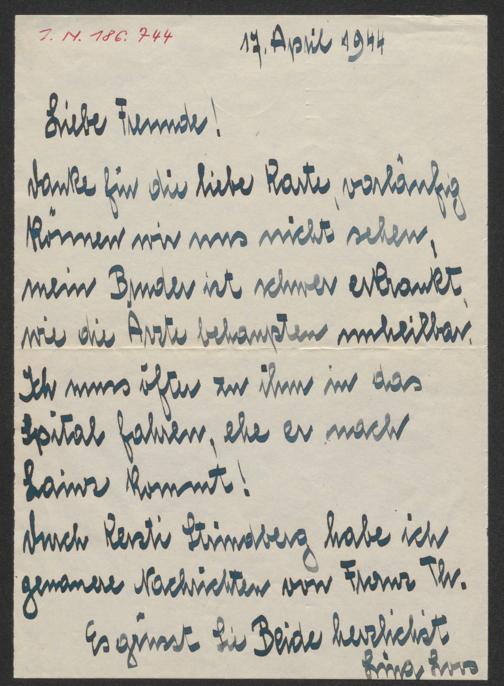 I. N. 186.744
17. April 1944
Liebe Freunde!
Danke für die liebe Karte, vorläufig
können wir uns nicht sehen,
mein Bruder ist schwer erkrankt,
wie die Ärzte behaupten unheilbar.
Ich muss öfter zu ihm in das
Spital fahren, ehe er nach
Lainz kommt!
Durch Kersti Strindberg habe ich
genauere Nachrichten von Franz Th.
Es grüsst Sie Beide herzlichst
Lina Loos